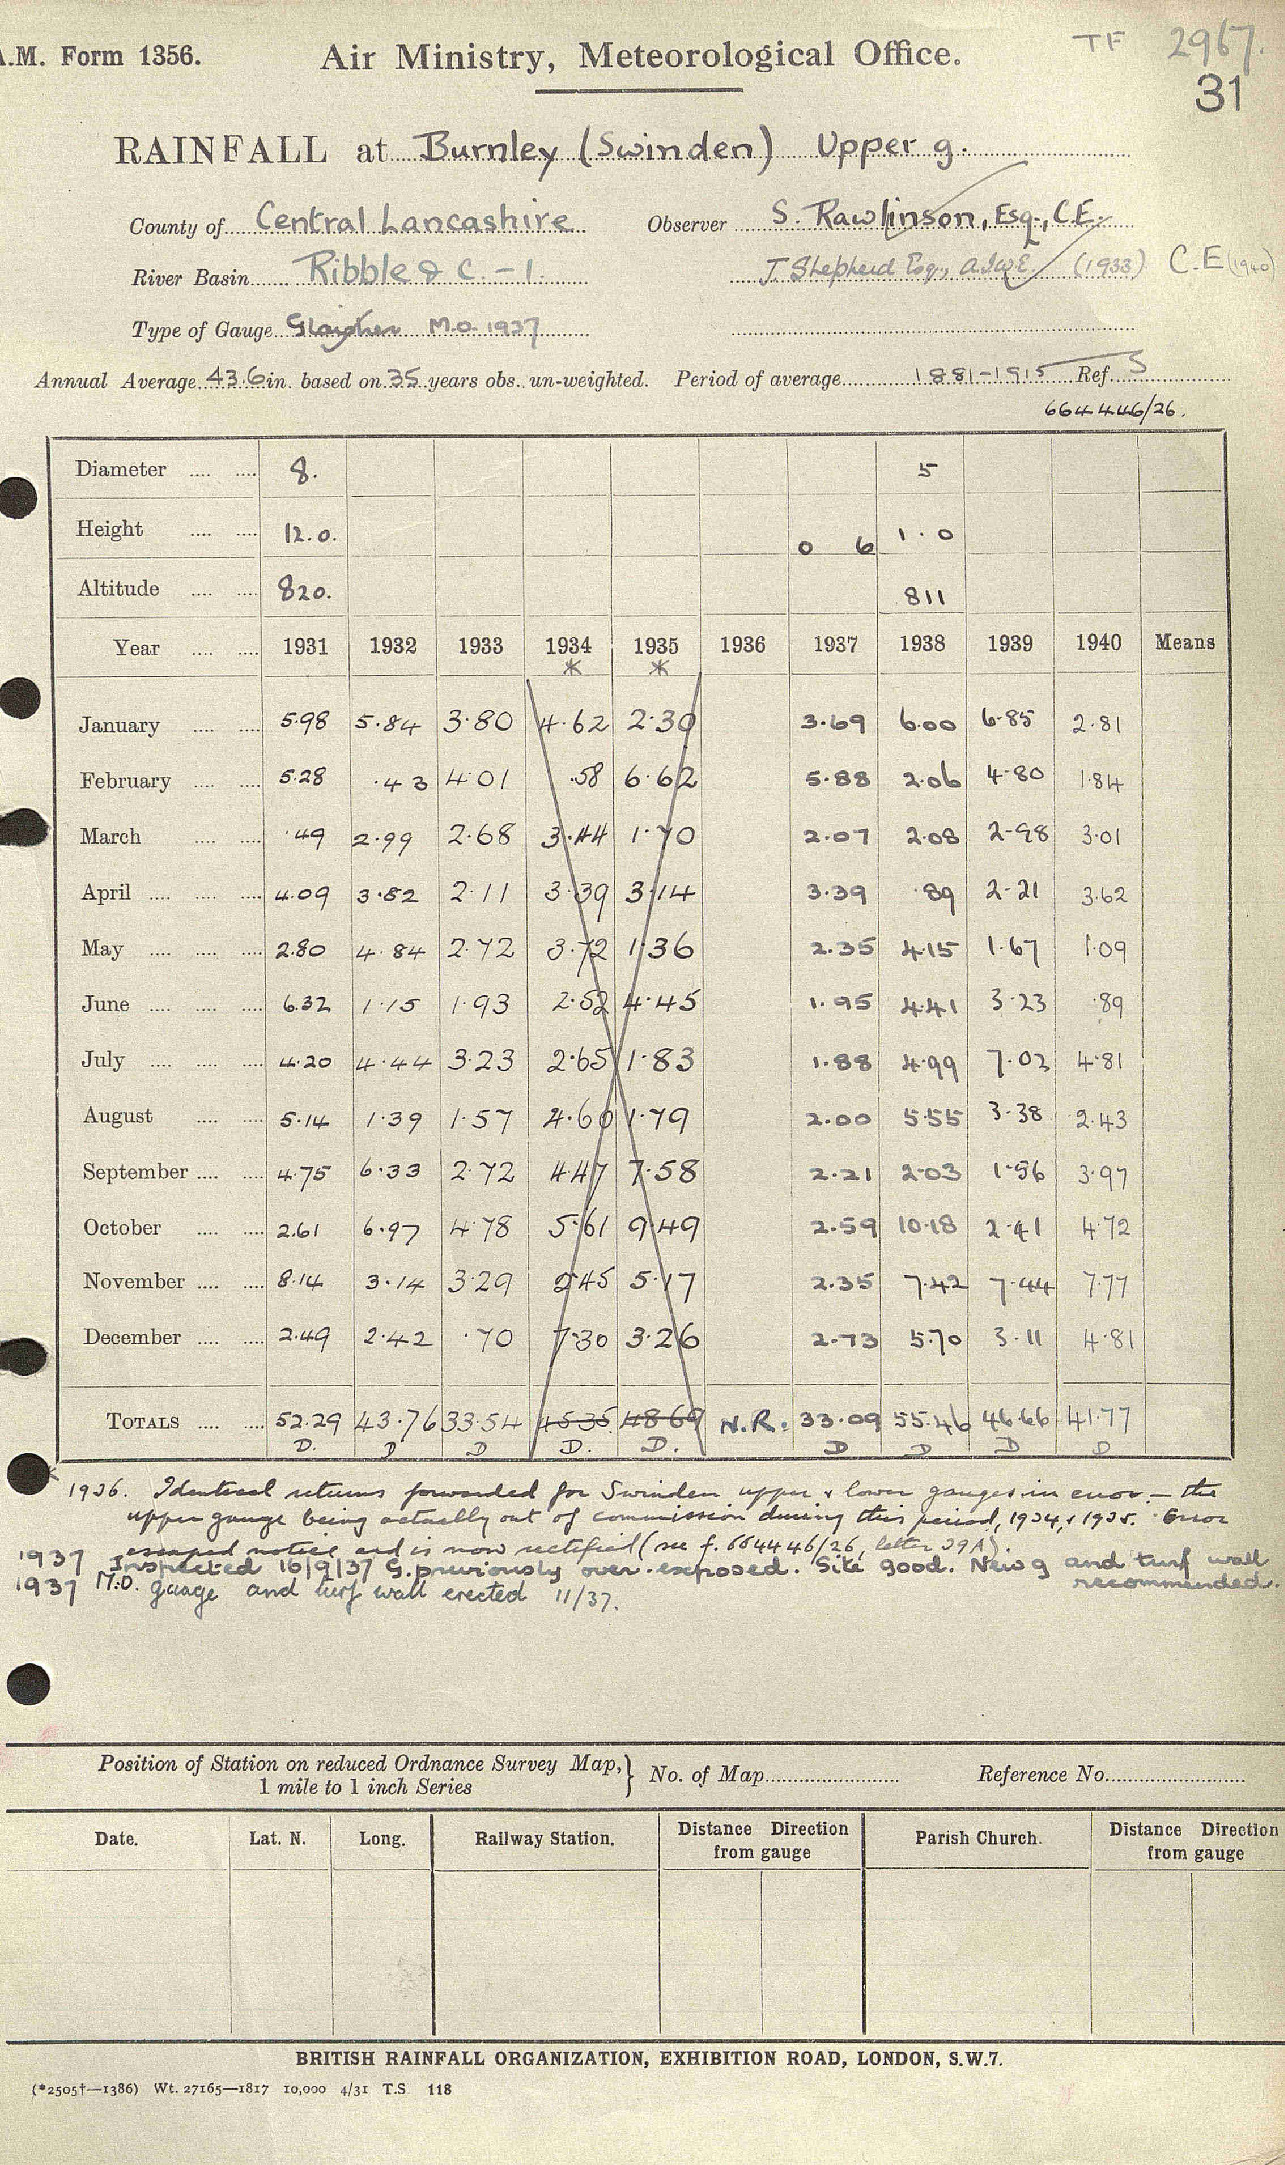 A.M. Form 1356. Air Ministry, Meteorological Office. TF 2967.
31
RAINFALL at Burnley (Swinden) Upper g.
County of Central Lancashire Observer S. Rawlinson, Esq., C.E.
River Basin Ribble & C. - 1. J. Shepherd Esq., (1933) C.E (1940)
Type of Gauge Glaisher M.O. 1937
Annual Average 43.6 in. based on 35 years obs. un-weighted. Period of average 1881-1915 Ref. S
664446/26.
Diameter 8. 5
Height 12.0. 0 6 1.0
Altitude 820. 811
Year 1931 1932 1933 1934 1935 1936 1937 1938 1939 1940 Means
* *
January 5.98 5.84 3.80 4.62 2.30 3.69 6.00 6.85 2.81
February 5.28 .43 4.01 .58 6.62 5.88 2.06 4.80 1.84
March .49 2.99 2.68 3.44 1.70 2.07 2.08 2.98 3.01
April 4.09 3.82 2.11 3.39 3.14 3.39 .89 2.21 3.62
May 2.80 4.84 2.72 3.72 1.36 2.35 4.15 1.67 1.09
June 6.32 1.15 1.93 2.52 4.45 1.95 4.41 3.23 .89
July 4.20 4.44 3.23 2.65 1.83 1.88 4.99 7.02 4.81
August 5.14 1.39 1.57 4.60 1.79 2.00 5.55 3.38 2.43
September 4.75 6.33 2.72 4.47 7.58 2.21 2.03 1.56 3.97
October 2.61 6.97 4.78 5.61 9.49 2.59 10.18 2.41 4.72
November 8.14 3.14 3.29 2.45 5.17 2.35 7.42 7.44 7.77
December 2.49 2.42 .70 7.30 3.26 2.73 5.70 3.11 4.81
TOTALS 52.29 43.76 33.54 45.35 48.69 N.R. 33.09 55.46 46.66 41.77
D. D D D. D. D D D D
1936. Identical returns forwarded for Swinden upper & lower gauges in error - the
upper gauge being actually out of commission during this period, 1934, & 1935. Error
escaped notice and is now rectified (see f. 664446/26, letter 29A).
1937 Inspected 16/9/37 G. previously over-exposed. Site good. New g and turf wall
recommended.
1937 M.O. gauge and turf wall erected 11/37.
Position of Station on reduced Ordnance Survey Map, } No. of Map Reference No.
1 mile to 1 inch Series
Date. Lat. N. Long. Railway Station. Distance Direction from gauge Parish Church. Distance Direction from gauge
BRITISH RAINFALL ORGANIZATION, EXHIBITION ROAD, LONDON, S.W.7.
(*2505†—1386) Wt. 27165—1817 10,000 4/31 T.S. 118